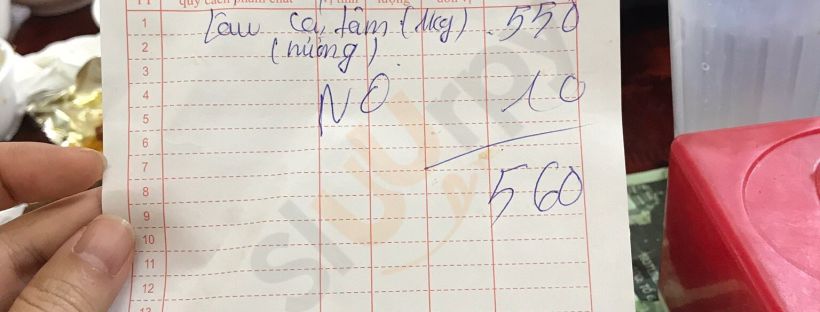 TT quy cách phẩm chất
Lẩu cá tầm (1kg) . 550
(nướng)
NO 10
560
1
2
3
4
5
6
7
8
9
10
11
12
13
sluurpy